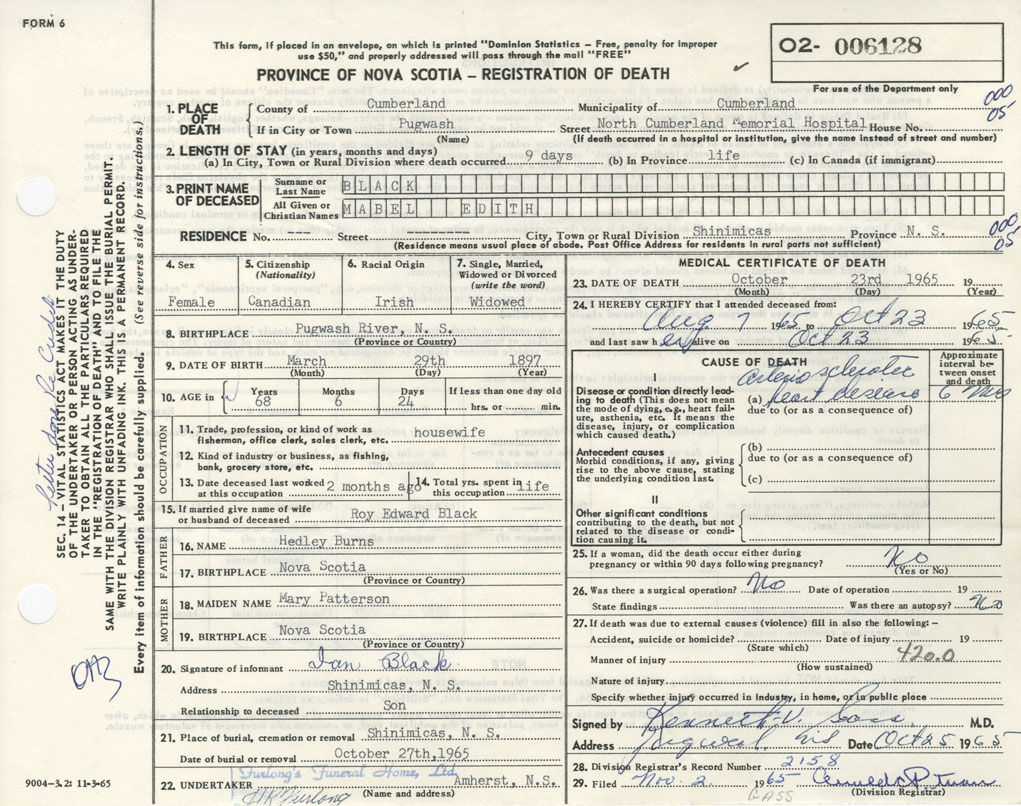 FORM 6
This form, if placed in an envelope, on which is printed "Dominion Statistics – Free, penalty for improper
use $50," and properly addressed will pass through the mail "FREE"
02- 006128
PROVINCE OF NOVA SCOTIA – REGISTRATION OF DEATH
For use of the Department only
000
05
1. PLACE OF DEATH
County of Cumberland Municipality of Cumberland
If in City or Town Pugwash Street North Cumberland Memorial Hospital House No.
(Name) (If death occurred in a hospital or institution, give the name instead of street and number)
2. LENGTH OF STAY (in years, months and days)
(a) In City, Town or Rural Division where death occurred 9 days (b) In Province life (c) In Canada (if immigrant)
3. PRINT NAME OF DECEASED
Surname or Last Name BLACK
All Given or Christian Names MABEL EDITH
RESIDENCE No. Street -------- City, Town or Rural Division Shinimicas Province N. S.
(Residence means usual place of abode. Post Office Address for residents in rural parts not sufficient)
000
05
SEC. 14 – VITAL STATISTICS ACT MAKES IT THE DUTY
OF THE UNDERTAKER OR PERSON ACTING AS UNDER-
TAKER TO OBTAIN ALL THE PARTICULARS REQUIRED
IN THE "REGISTRATION OF DEATH" AND TO FILE THE
SAME WITH THE DIVISION REGISTRAR WHO SHALL ISSUE THE BURIAL PERMIT.
WRITE PLAINLY WITH UNFADING INK. THIS IS A PERMANENT RECORD.
Every item of information should be carefully supplied. (See reverse side for instructions,)
4. Sex
Female
5. Citizenship
(Nationality)
Canadian
6. Racial Origin
Irish
7. Single, Married,
Widowed or Divorced
(write the word)
Widowed
8. BIRTHPLACE Pugwash River, N. S.
(Province or Country)
9. DATE OF BIRTH March 29th 1897
(Month) (Day) (Year)
10. AGE in
Years Months Days If less than one day old
68 6 24 hrs. or min.
OCCUPATION
11. Trade, profession, or kind of work as
fisherman, office clerk, sales clerk, etc. housewife
12. Kind of industry or business, as fishing,
bank, grocery store, etc.
13. Date deceased last worked
at this occupation 2 months ago
14. Total yrs. spent in
this occupation life
15. If married give name of wife
or husband of deceased Roy Edward Black
FATHER
16. NAME Hedley Burns
17. BIRTHPLACE Nova Scotia
(Province or Country)
MOTHER
18. MAIDEN NAME Mary Patterson
19. BIRTHPLACE Nova Scotia
(Province or Country)
20. Signature of informant Ian Black
Address Shinimicas, N. S.
Relationship to deceased Son
21. Place of burial, cremation or removal Shinimicas, N. S.
Date of burial or removal October 27th,1965
Furlong's Funeral Home, Ltd
22. UNDERTAKER Amherst, N.S.
(Name and address)
9004-3.2: 11-3-65
MEDICAL CERTIFICATE OF DEATH
23. DATE OF DEATH October 23rd 1965 19
(Month) (Day) (Year)
24. I HEREBY CERTIFY that I attended deceased from:
Aug 7 1965 to Oct 23 1965
and last saw her alive on Oct 23 1965
CAUSE OF DEATH
Approximate
interval be-
tween onset
and death
I
Disease or condition directly lead-
ing to death (This does not mean
the mode of dying, e.g., heart fail-
ure, asthenia, etc. It means the
disease, injury, or complication
which caused death.)
arterio sclerotic
(a) heart disease 6 Mo
due to (or as a consequence of)
Antecedent causes
Morbid conditions, if any, giving
rise to the above cause, stating
the underlying condition last.
(b)
due to (or as a consequence of)
(c)
II
Other significant conditions
contributing to the death, but not
related to the disease or condi-
tion causing it.
25. If a woman, did the death occur either during
pregnancy or within 90 days following pregnancy? No
(Yes or No)
26. Was there a surgical operation? No Date of operation 19
State findings Was there an autopsy? No
27. If death was due to external causes (violence) fill in also the following: –
Accident, suicide or homicide? Date of injury 19
(State which)
Manner of injury 420.0
(How sustained)
Nature of injury
Specify whether injury occurred in industry, in home, or in public place
Signed by Kenneth V. M.D.
Address Pugwash NS Date Oct 25 1965
28. Division Registrar's Record Number 2158
29. Filed Nov. 2 1965
(Division Registrar)
GASS